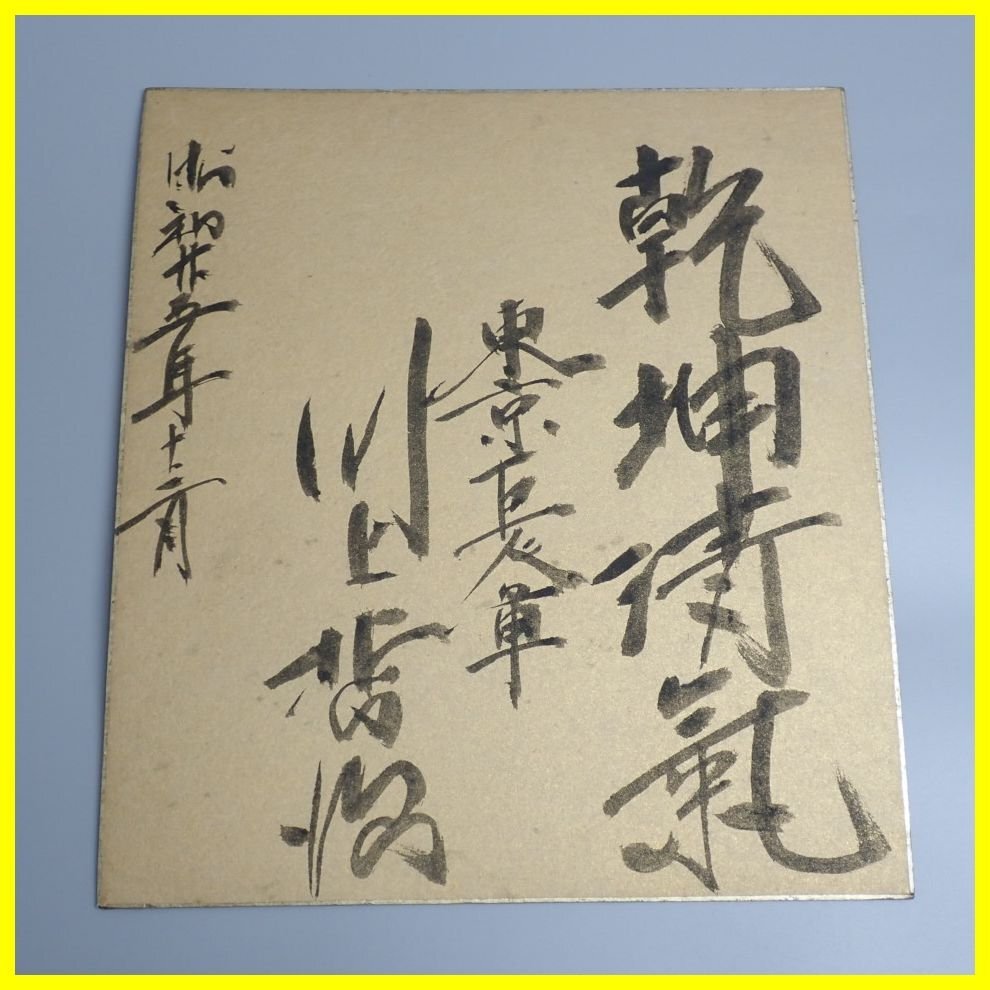 乾坤氣
東京巨人軍
川上哲治
昭和廿五年十二月